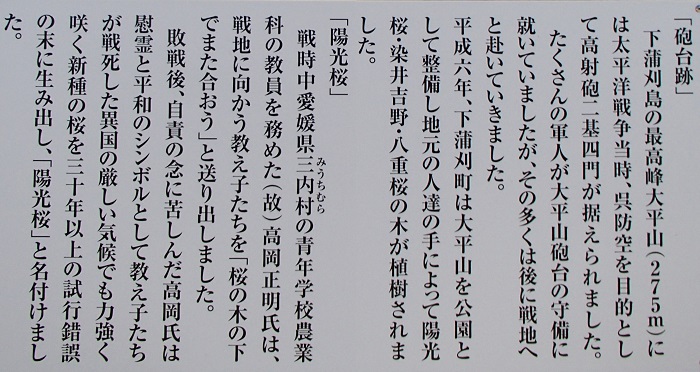 「砲台跡」
下蒲刈島の最高峰大平山(275m)に
は太平洋戦争当時、呉防空を目的とし
て高射砲二基四門が据えられました。
たくさんの軍人が大平山砲台の守備に
就いていましたが、その多くは後に戦地へ
と赴いていきました。
平成六年、下蒲刈町は大平山を公園と
して整備し地元の人達の手によって陽光
桜・染井吉野・八重桜の木が植樹されま
した。
「陽光桜」
戦時中愛媛県三内村の青年学校農業
みうちむら
科の教員を務めた(故)高岡正明氏は、
戦地に向かう教え子たちを「桜の木の下
でまた合おう」と送り出しました。
敗戦後、自責の念に苦しんだ高岡氏は
慰霊と平和のシンボルとして教え子たち
が戦死した異国の厳しい気候でも力強く
咲く新種の桜を三十年以上の試行錯誤
の末に生み出し、「陽光桜」と名付けまし
た。